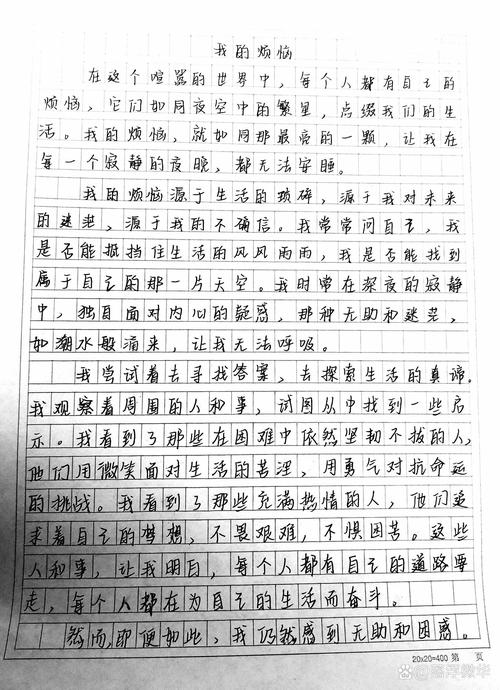 我的烦恼
在这个喧嚣的世界中，每个人都有自己的
烦恼，它们如同夜空中的繁星，点缀我们的生
活。我的烦恼，就如同那最亮的一颗，让我在
每一个寂静的夜晚，都无法安睡。
我的烦恼源于生活的琐碎，源于我对未来
的迷茫，源于我的不确信。我常常问自己，我
是否能抵挡住生活的风风雨雨，我是否能找到
属于自己的那一片天空。我时常在深夜的寂静
中，独自面对内心的疑惑，那种无助和迷茫，
如潮水般涌来，让我无法呼吸。
我尝试着去寻找答案，去探索生活的真谛。
我观察着周围的人和事，试图从中找到一些启
示。我看到了那些在困难中依然坚韧不拔的人，
他们用微笑面对生活的苦涩，用勇气对抗命运
的挑战。我看到了那些充满热情的人，他们追
求着自己的梦想，不畏艰难，不惧困苦。这些
人和事，让我明白，每个人都有自己的道路要
走，每个人都在为自己的生活而奋斗。
然而，即便如此，我仍然感到无助和困惑。
20x20=400 第 页